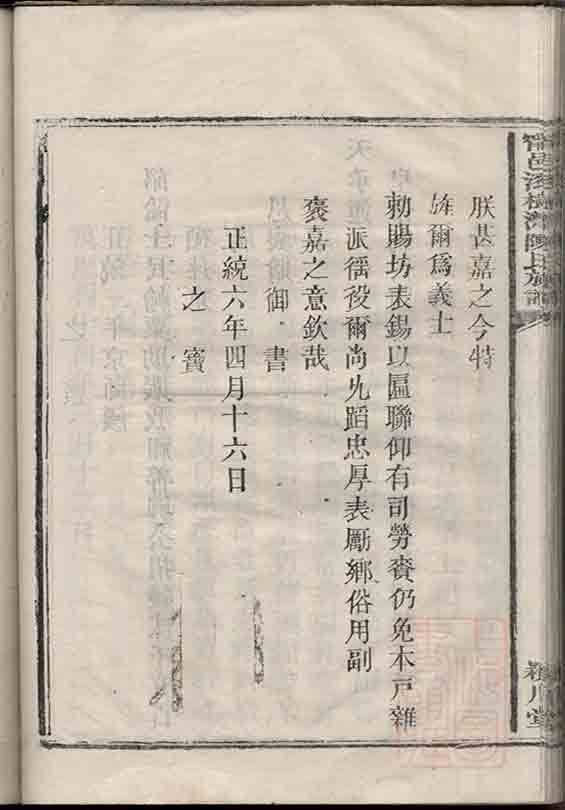 朕甚嘉之今特
旌爾爲義士
勑賜坊表錫以匾聯仰有司勞賚仍免本戸雜
派徭役爾尚允蹈忠厚表厲鄉俗用副
褒嘉之意欽哉
御書
正統六年四月十六日
之寶